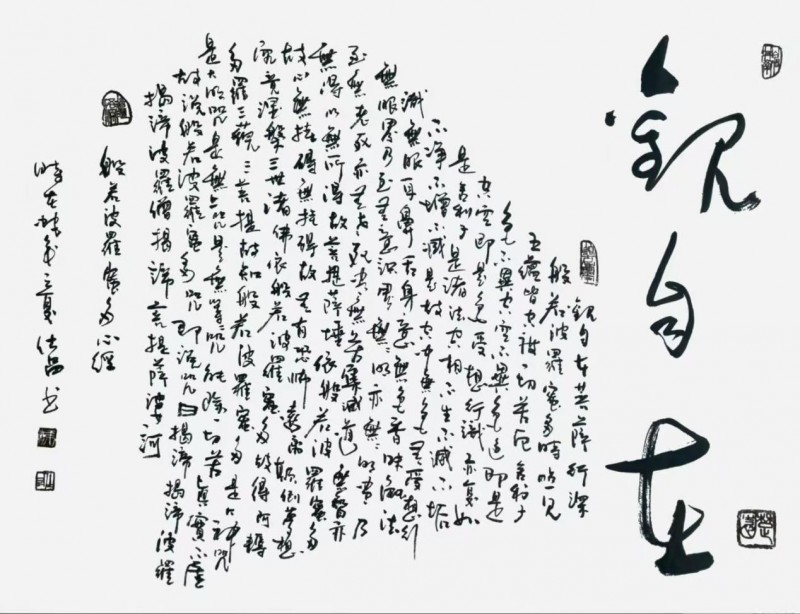 觀自在
觀自在菩薩行深
般若波羅蜜多時照見
五蘊皆空度一切苦厄舍利子
色不異空空不異色色即是
空空即是色受想行識亦復如
是舍利子是諸法空相不生不滅不垢
不淨不增不減是故空中無色無受想行
識無眼耳鼻舌身意無色聲香味觸法
無眼界乃至無意識界無無明亦無無明盡乃
至無老死亦無老死盡無苦集滅道無智亦
無得以無所得故菩提薩埵依般若波羅蜜多
故心無掛礙無掛礙故無有恐怖遠離顛倒夢想
究竟涅槃三世諸佛依般若波羅蜜多故得阿耨
多羅三藐三菩提故知般若波羅蜜多是大神咒
是大明咒是無上咒是無等等咒能除一切苦真實不虛
故說般若波羅蜜多咒即說咒曰揭諦揭諦波羅
揭諦波羅僧揭諦菩提薩婆訶
般若波羅蜜多心經
時在之夏书